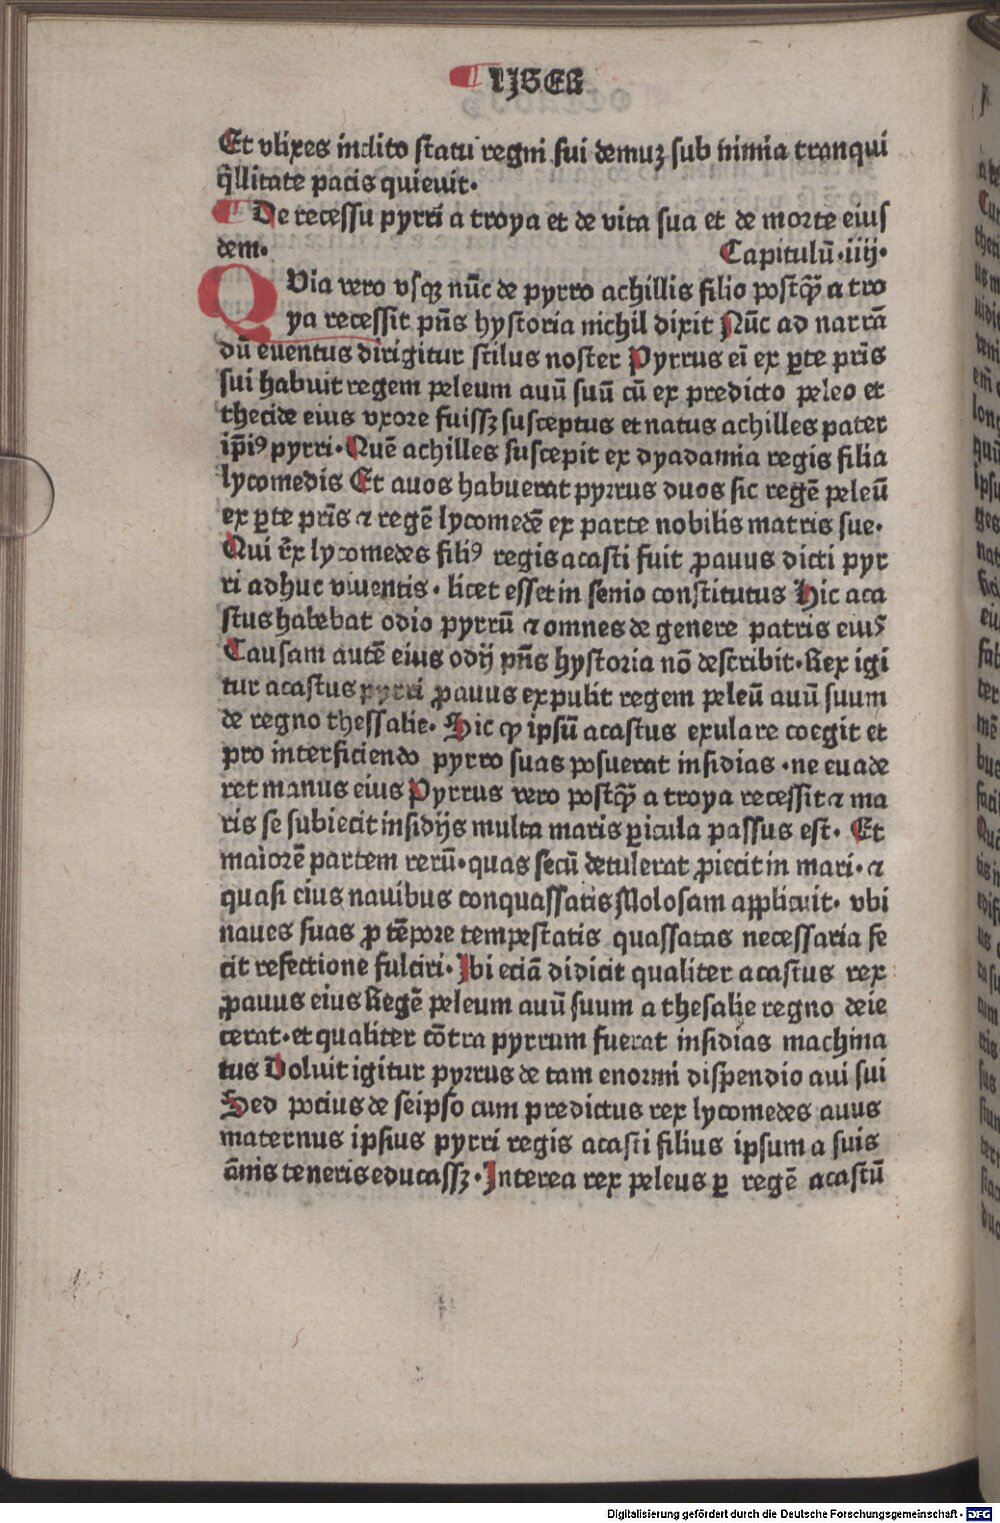 ¶ LIBER
Et vlixes inclito statu regni sui demuꝫ sub nimia tranqui
q̄llitate pacis quieuit.
¶ De recessu pyrri a troya et de vita sua et de morte eius
dem. Capitulū.iiij.
QVia vero vsqꝫ nūc de pyrro achillis filio postꝙ̄ a tro
ya recessit pn̄s hystoria nichil dixit Nūc ad narrā
dū euentus dirigitur stilus noster Pyrrus ei̅ ex ꝑte pr̄is
sui habuit regem peleum auū suū cū ex predicto peleo et
thecide eius vxore fuissꝫ susceptus et natus achilles pater
ip̄iꝰ pyrri. Quē achilles suscepit ex dyadamia regis filia
lycomedis Et auos habuerat pyrrus duos sic regē peleū
ex ꝑte pr̄is ⁊ regē lycomedē ex parte nobilis matris sue.
Qui r̄ex lycomedes filiꝰ regis acasti fuit ꝓauus dicti pyr
ri adhuc viuentis. licet esset in senio constitutus Hic aca
stus habebat odio pyrrū ⁊ omnes de genere patris eiuꝰ
Causam autē eius odij pn̄s hystoria nō describit. Rex igi
tur acastus pyrri ꝓauus expulit regem peleū auū suum
de regno thessalie. Sic ꝙ ipsū acastus exulare coegit et
pro interficiendo pyrro suas posuerat insidias .ne euade
ret manus eius Pyrrus vero postꝙ̄ a troya recessit ⁊ ma
ris se subiecit insidijs multa maris ꝑicula passus est. Et
maiorē partem rerū. quas secū detulerat ꝓiecit in mari. ⁊
quasi eius nauibus conquassatis Molosam applicuit. vbi
naues suas ꝓ tēpore tempestatis quassatas necessaria fe
cit refectione fulciri. Ibi eciā didicit qualiter acastus rex
ꝓauus eius Regē peleum auū suum a thesalie regno deie
cerat. et qualiter cōtra pyrrum fuerat insidias machina
tus Doluit igitur pyrrus de tam enormi dispendio aui sui
Sed pocius de seipso cum predictus rex lycomedes auus
maternus ipsius pyrri regis acasti filius ipsum a suis
ānis teneris educassꝫ. Interea rex peleus ꝑ regē acastū
Digitalisierung gefördert durch die Deutsche Forschungsgemeinschaft - DFG